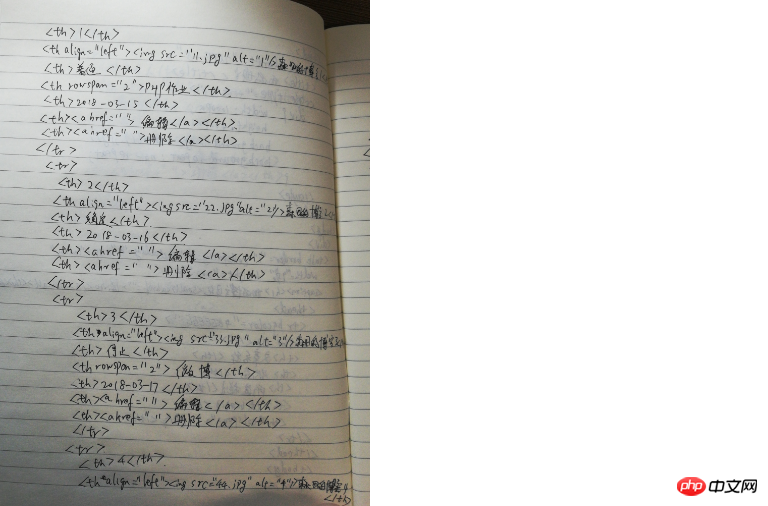 <th>1</th>
<th align="left"><img src="11.jpg" alt="1"/>
<th>普通</th>
<th rowspan="2">PHP作业</th>
<th>2018-03-15</th>
<th><a href=" "> 编辑</a></th>
<th><a href=" ">删除</a></th>
</tr>
<tr>
<th>2</th>
<th align="left"><img src="22.jpg" alt="2"/>
<th></th>
<th>2018-03-16</th>
<th><a href=" "> 编辑 </a></th>
<th><a href=" ">删除 </a></th>
</tr>
<tr>
<th>3</th>
<th align="left"><img src="33.jpg" alt="3"/>
<th>停止</th>
<th rowspan="2">微博</th>
<th>2018-03-17</th>
<th><a href=" "> 编辑</a></th>
<th><a href=" ">删除</a></th>
</tr>
<tr>
<th>4</th>
<th align="left"><img src="44.jpg" alt="4"/>
</th>
php 中文网